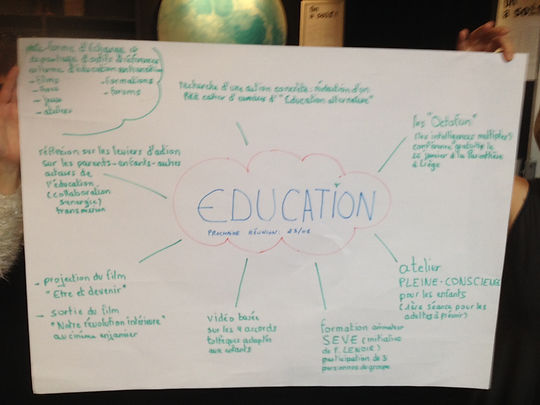 plateforme d'échange et
de partage d'outils de référence
- films
- formations
- livres
- forums
- jeux
- ateliers
Recherche d'une action concrète : rédaction d'un
"Education alternative"
les "Octofun"
(les intelligences multiples)
conférence gratuite le
janvier à la Parenthèse
à Liège
réflexion sur les leviers d'action
sur les parents-enfants-autres
acteurs de
l'éducation
(collaboration
synergie)
transmission
EDUCATION
PROCHAINE RÉUNION
- projection du film
"Etre et devenir"
- sortie du film
"Notre révolution intérieure"
au cinéma en janvier
vidéo basée
sur les 4 accords
toltèques adaptés
aux enfants
formation animateur
SEVE (initiative
de F. LENOIR)
participation de 3
personnes de groupe
atelier
PLEINE-CONSCIENCE
pour les enfants
(1ère séance pour les
adultes à prévoir)